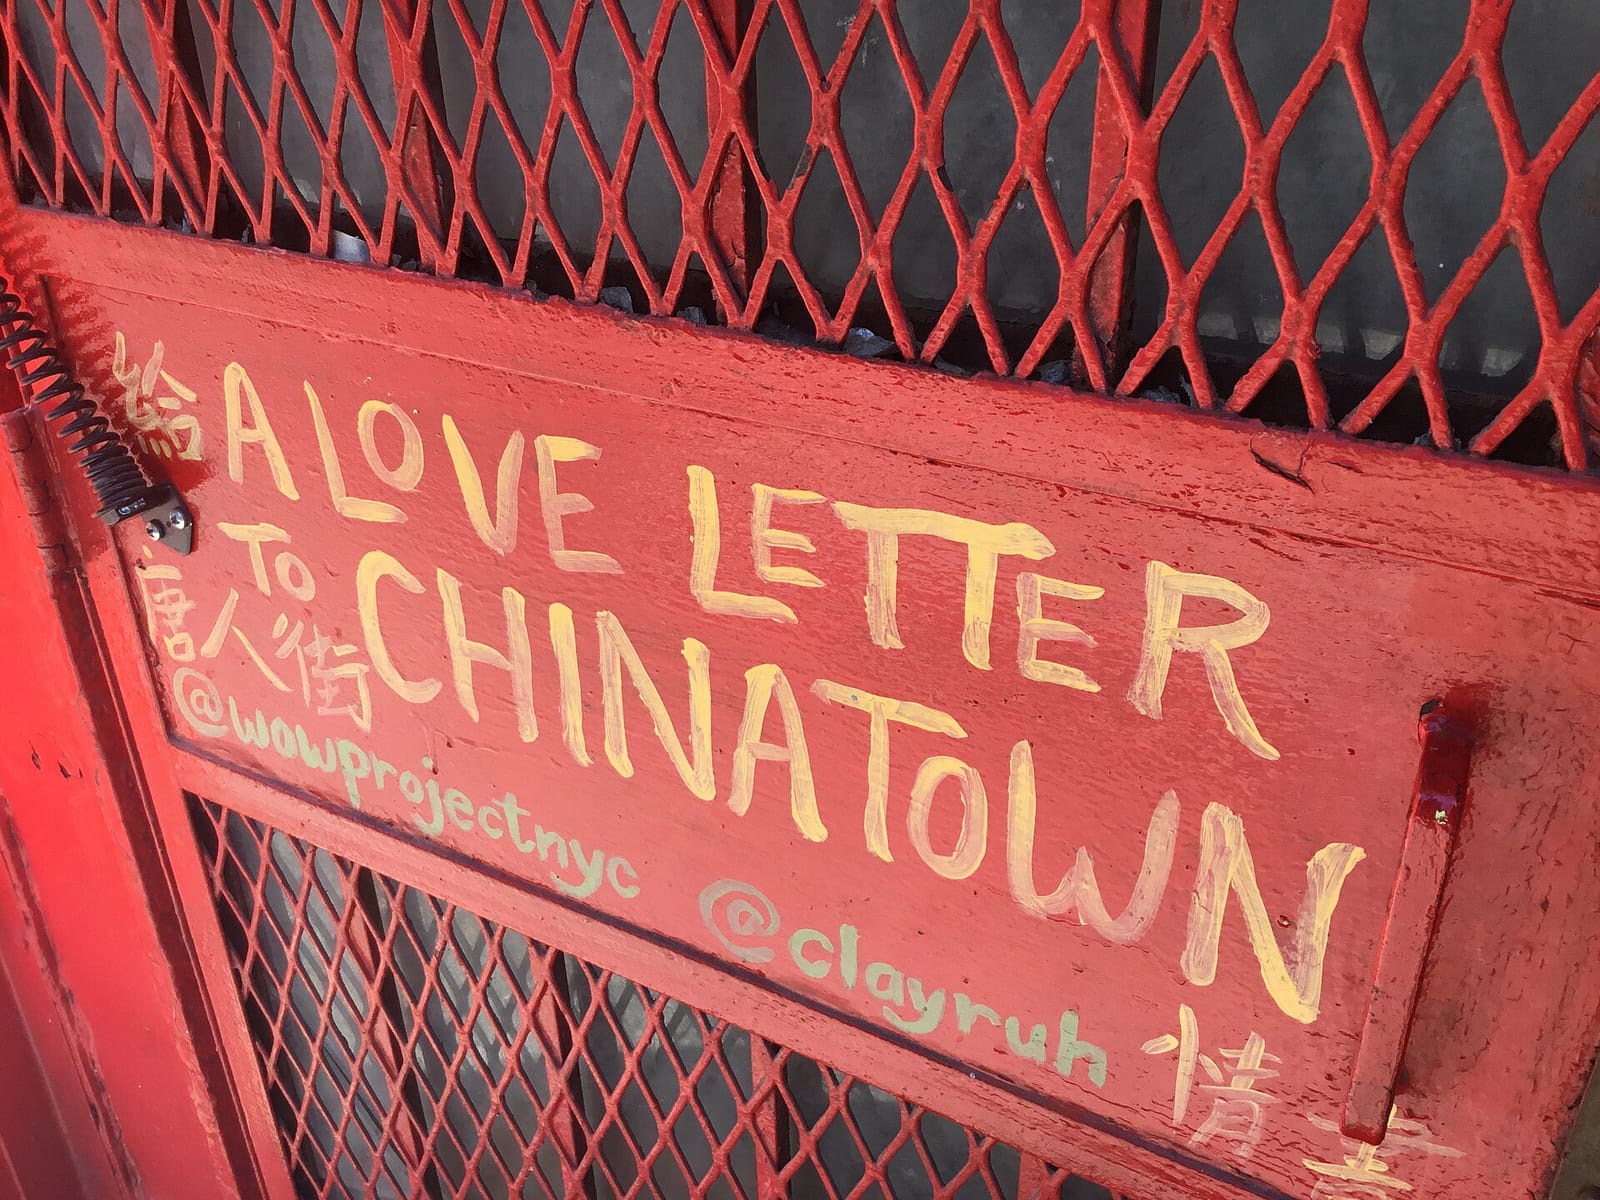 給 A LOVE LETTER
TO CHINATOWN
唐人街
@wowprojectnyc @clayruh
情書